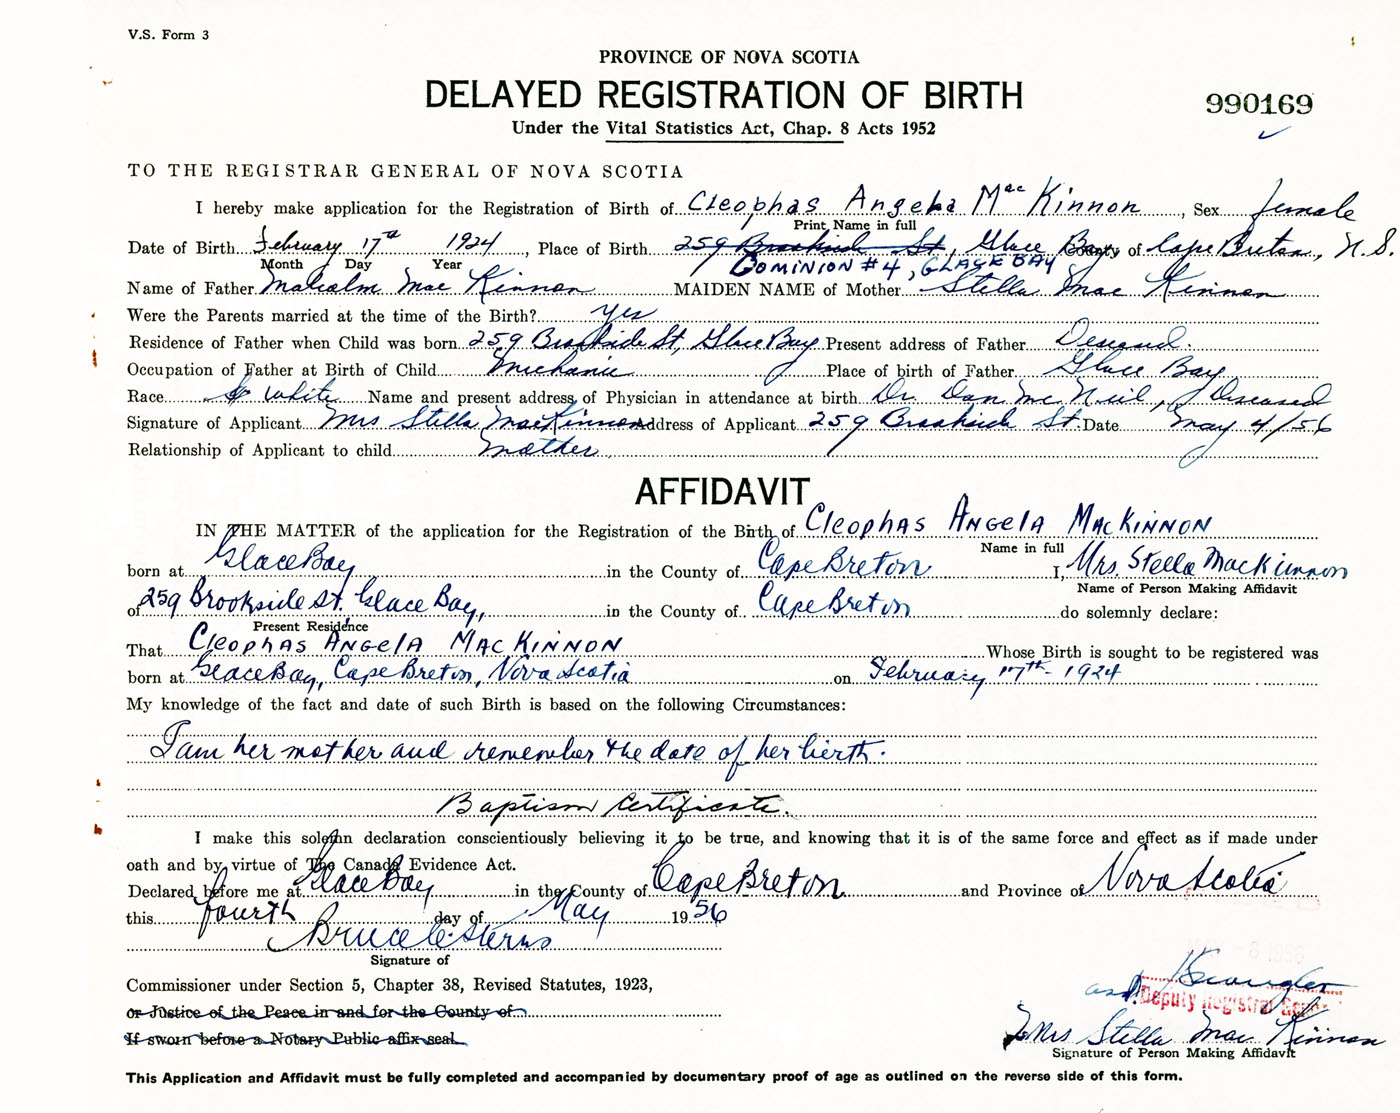 V.S. Form 3
PROVINCE OF NOVA SCOTIA
DELAYED REGISTRATION OF BIRTH
990169
Under the Vital Statistics Act, Chap. 8 Acts 1952
TO THE REGISTRAR GENERAL OF NOVA SCOTIA
I hereby make application for the Registration of Birth of Cleophas Angela MacKinnon, Sex female
Print Name in full
Date of Birth February 17th 1924, Place of Birth 259 Brookside St, Glace Bay County of Cape Breton, N.S.
Month Day Year DOMINION #4, GLACE BAY
Name of Father Malcolm Mac Kinnon MAIDEN NAME of Mother Stella Mac Kinnon
Were the Parents married at the time of the Birth? yes
Residence of Father when Child was born 259 Brookside St, Glace Bay Present address of Father Deseased.
Occupation of Father at Birth of Child Mechanic Place of birth of Father Glace Bay
Race White Name and present address of Physician in attendance at birth Dr. Dan Mc Neil, Deseased
Signature of Applicant Mrs Stella MacKinnon Address of Applicant 259 Brookside St. Date May 4/56
Relationship of Applicant to child mother
AFFIDAVIT
IN THE MATTER of the application for the Registration of the Birth of Cleophas Angela MacKinnon
Name in full
born at Glace Bay in the County of Cape Breton I, Mrs. Stella MacKinnon
Name of Person Making Affidavit
of 259 Brookside St. Glace Bay, in the County of Cape Breton do solemnly declare:
Present Residence
That Cleophas Angela MacKinnon Whose Birth is sought to be registered was
born at Glace Bay, Cape Breton, Nova Scotia on February 17th - 1924
My knowledge of the fact and date of such Birth is based on the following Circumstances:
I am her mother and remember the date of her birth.
Baptism Certificate.
I make this solemn declaration conscientiously believing it to be true, and knowing that it is of the same force and effect as if made under
oath and by virtue of The Canada Evidence Act.
Declared before me at Glace Bay in the County of Cape Breton and Province of Nova Scotia
this fourth day of May 1956
Bruce C. Sterns
Signature of
Commissioner under Section 5, Chapter 38, Revised Statutes, 1923,
Deputy Registrar General
or Justice of the Peace in and for the County of
If sworn before a Notary Public affix seal.
Mrs Stella Mac Kinnon
Signature of Person Making Affidavit
This Application and Affidavit must be fully completed and accompanied by documentary proof of age as outlined on the reverse side of this form.